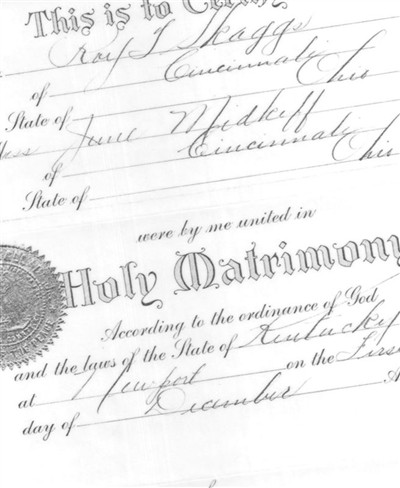 This is to Certify
Roy T Skaggs
of Cincinnati
State of Ohio
Miss June Midkiff
of Cincinnati
State of Ohio
were by me united in
Holy Matrimony
According to the ordinance of God
and the laws of the State of Kentucky
at Newport on the First
day of December A